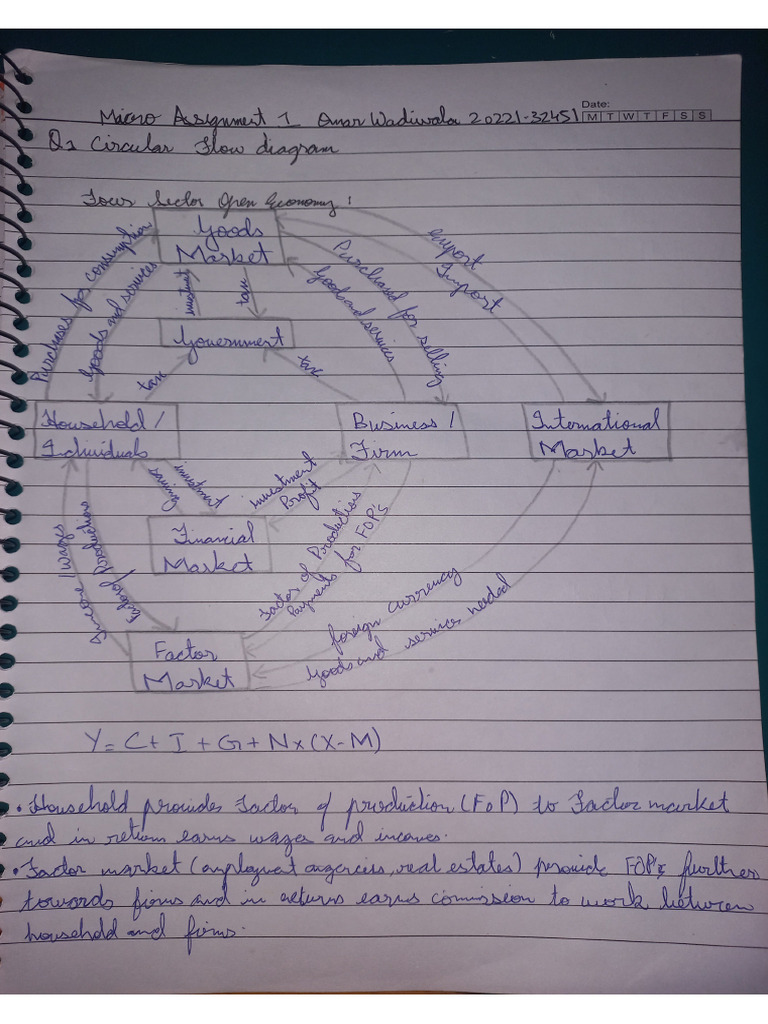 Date:
Micro Assignment 1 Omar Wadiwala 20221-32451
M T W T F S S
Q1 Circular Flow diagram
Four Sector Open Economy:
Goods
Market
Purchases for consumption
Goods and services
investment
tax
Purchased for selling
Goods and services
export
Import
Government
tax
tax
Household /
Individuals
Business /
Firm
International
Market
savings
investment
Profit
Financial
Market
Income / wages
Factor of Production
Factor of Production
Payments for FOPs
foreign currency
Goods and services needed
Factor
Market
Y = C + I + G + Nx (X - M)
• Household provides Factor of production (FoP) to Factor market
and in return earns wages and incomes.
• Factor market (employment agencies, real estates) provide FOPs further
towards firms and in returns earns comission to work between
household and firms.